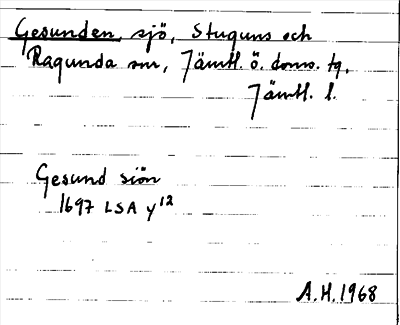 Gesunden, sjö, Stuguns och
Ragunda snr, Jämtl. ö. doms. tg,
Jämtl. l.
Gesund siön
1697 LSA y12
A.H. 1968